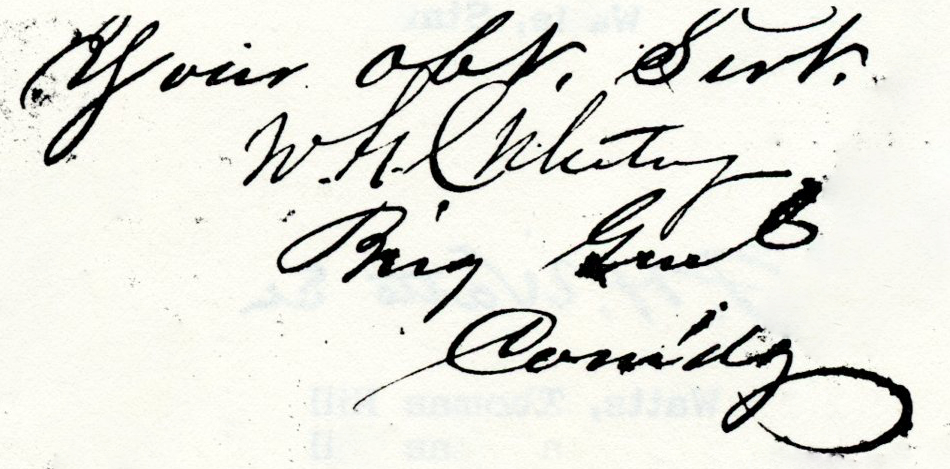 Your obt. Servt.
W.H.C Whiting
Brig Genl
Com'dg